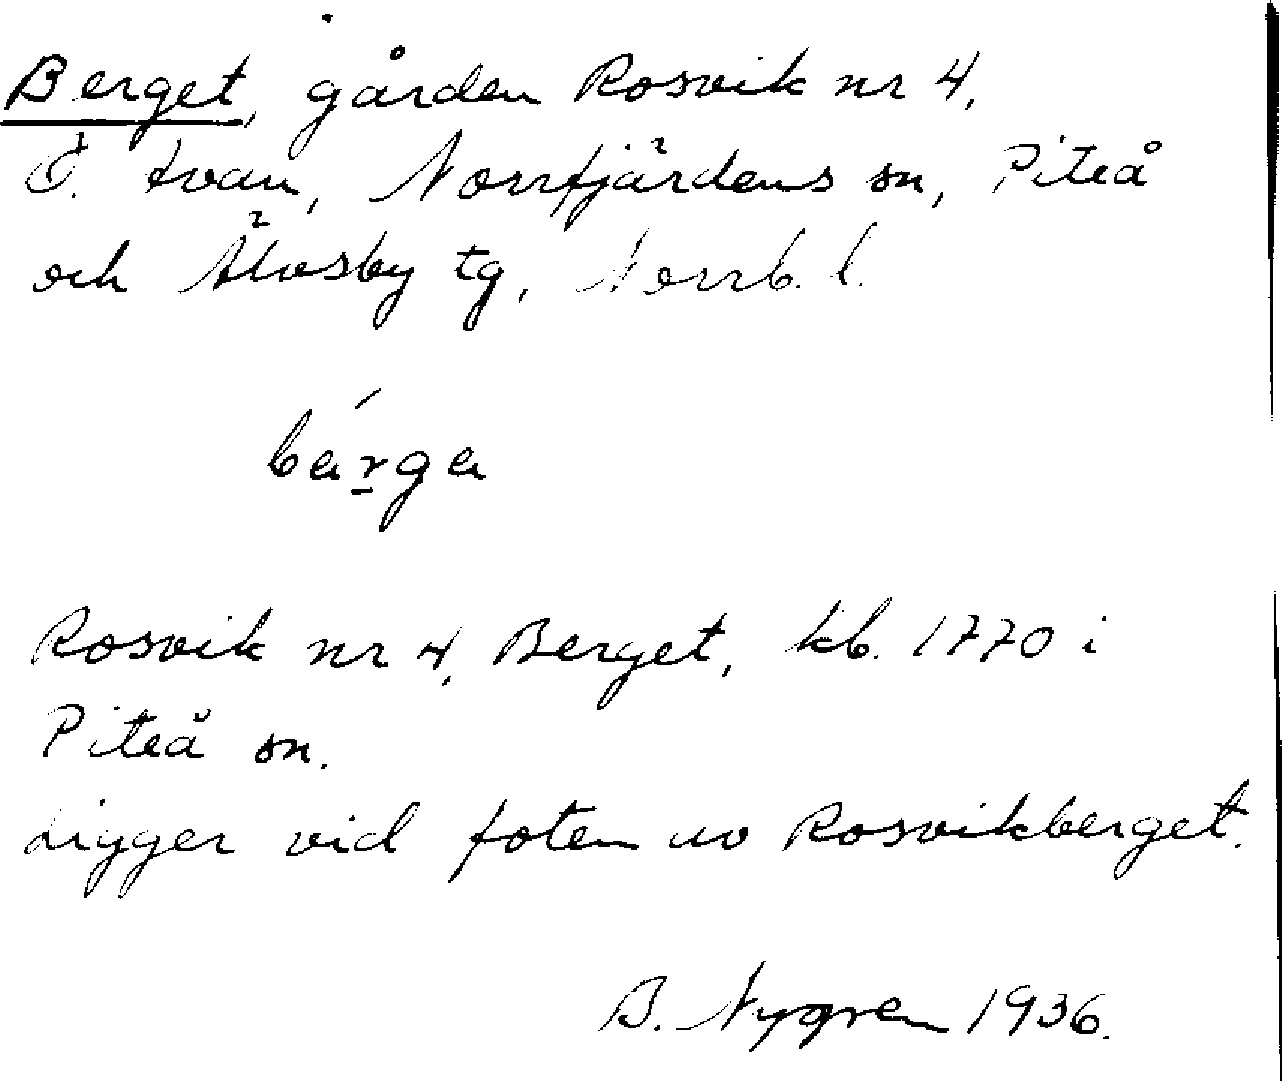 Berget, gården Rosvik nr 4,
Ö. tvan, Norrfjärdens sn, Piteå
och Älvsby tg, Norrb. l.
bärga
Rosvik nr 4, Berget, kb. 1770 i
Piteå sn.
Ligger vid foten av Rosvikberget.
B. Nygren 1936.